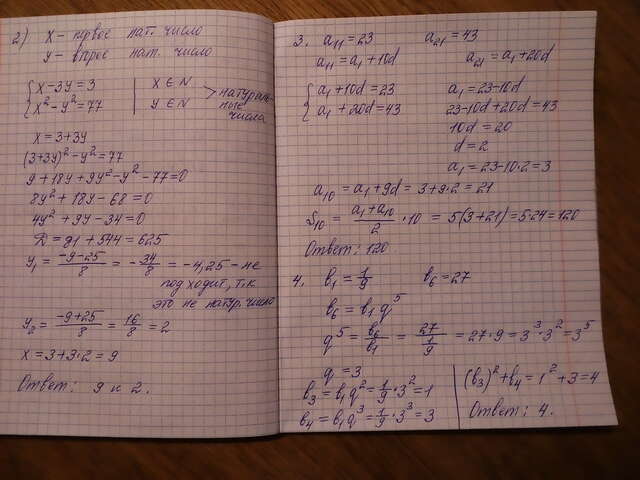 2) x - первое нат. число
y - второе нат. число
{ x - 3y = 3
x² - y² = 77
x ∈ N
y ∈ N
> натуральные числа
x = 3 + 3y
(3+3y)² - y² = 77
9 + 18y + 9y² - y² - 77 = 0
8y² + 18y - 68 = 0
4y² + 9y - 34 = 0
D = 81 + 544 = 625
y₁ = (-9-25)/8 = -34/8 = -4,25 - не
подходит, т.к
это не натур. число
y₂ = (-9+25)/8 = 16/8 = 2
x = 3 + 3·2 = 9
Ответ: 9 и 2.
3. a₁₁ = 23 a₂₁ = 43
a₁₁ = a₁ + 10d a₂₁ = a₁ + 20d
{ a₁ + 10d = 23
a₁ + 20d = 43
a₁ = 23 - 10d
23 - 10d + 20d = 43
10d = 20
d = 2
a₁ = 23 - 10·2 = 3
a₁₀ = a₁ + 9d = 3 + 9·2 = 21
S₁₀ = (a₁ + a₁₀)/2 · 10 = 5(3+21) = 5·24 = 120
Ответ: 120.
4. b₁ = 1/9 b₆ = 27
b₆ = b₁q⁵
q⁵ = b₆/b₁ = 27/(1/9) = 27·9 = 3³·3² = 3⁵
q = 3
b₃ = b₁q² = 1/9·3² = 1
b₄ = b₁q³ = 1/9·3³ = 3
(b₃)² + b₄ = 1² + 3 = 4
Ответ: 4.